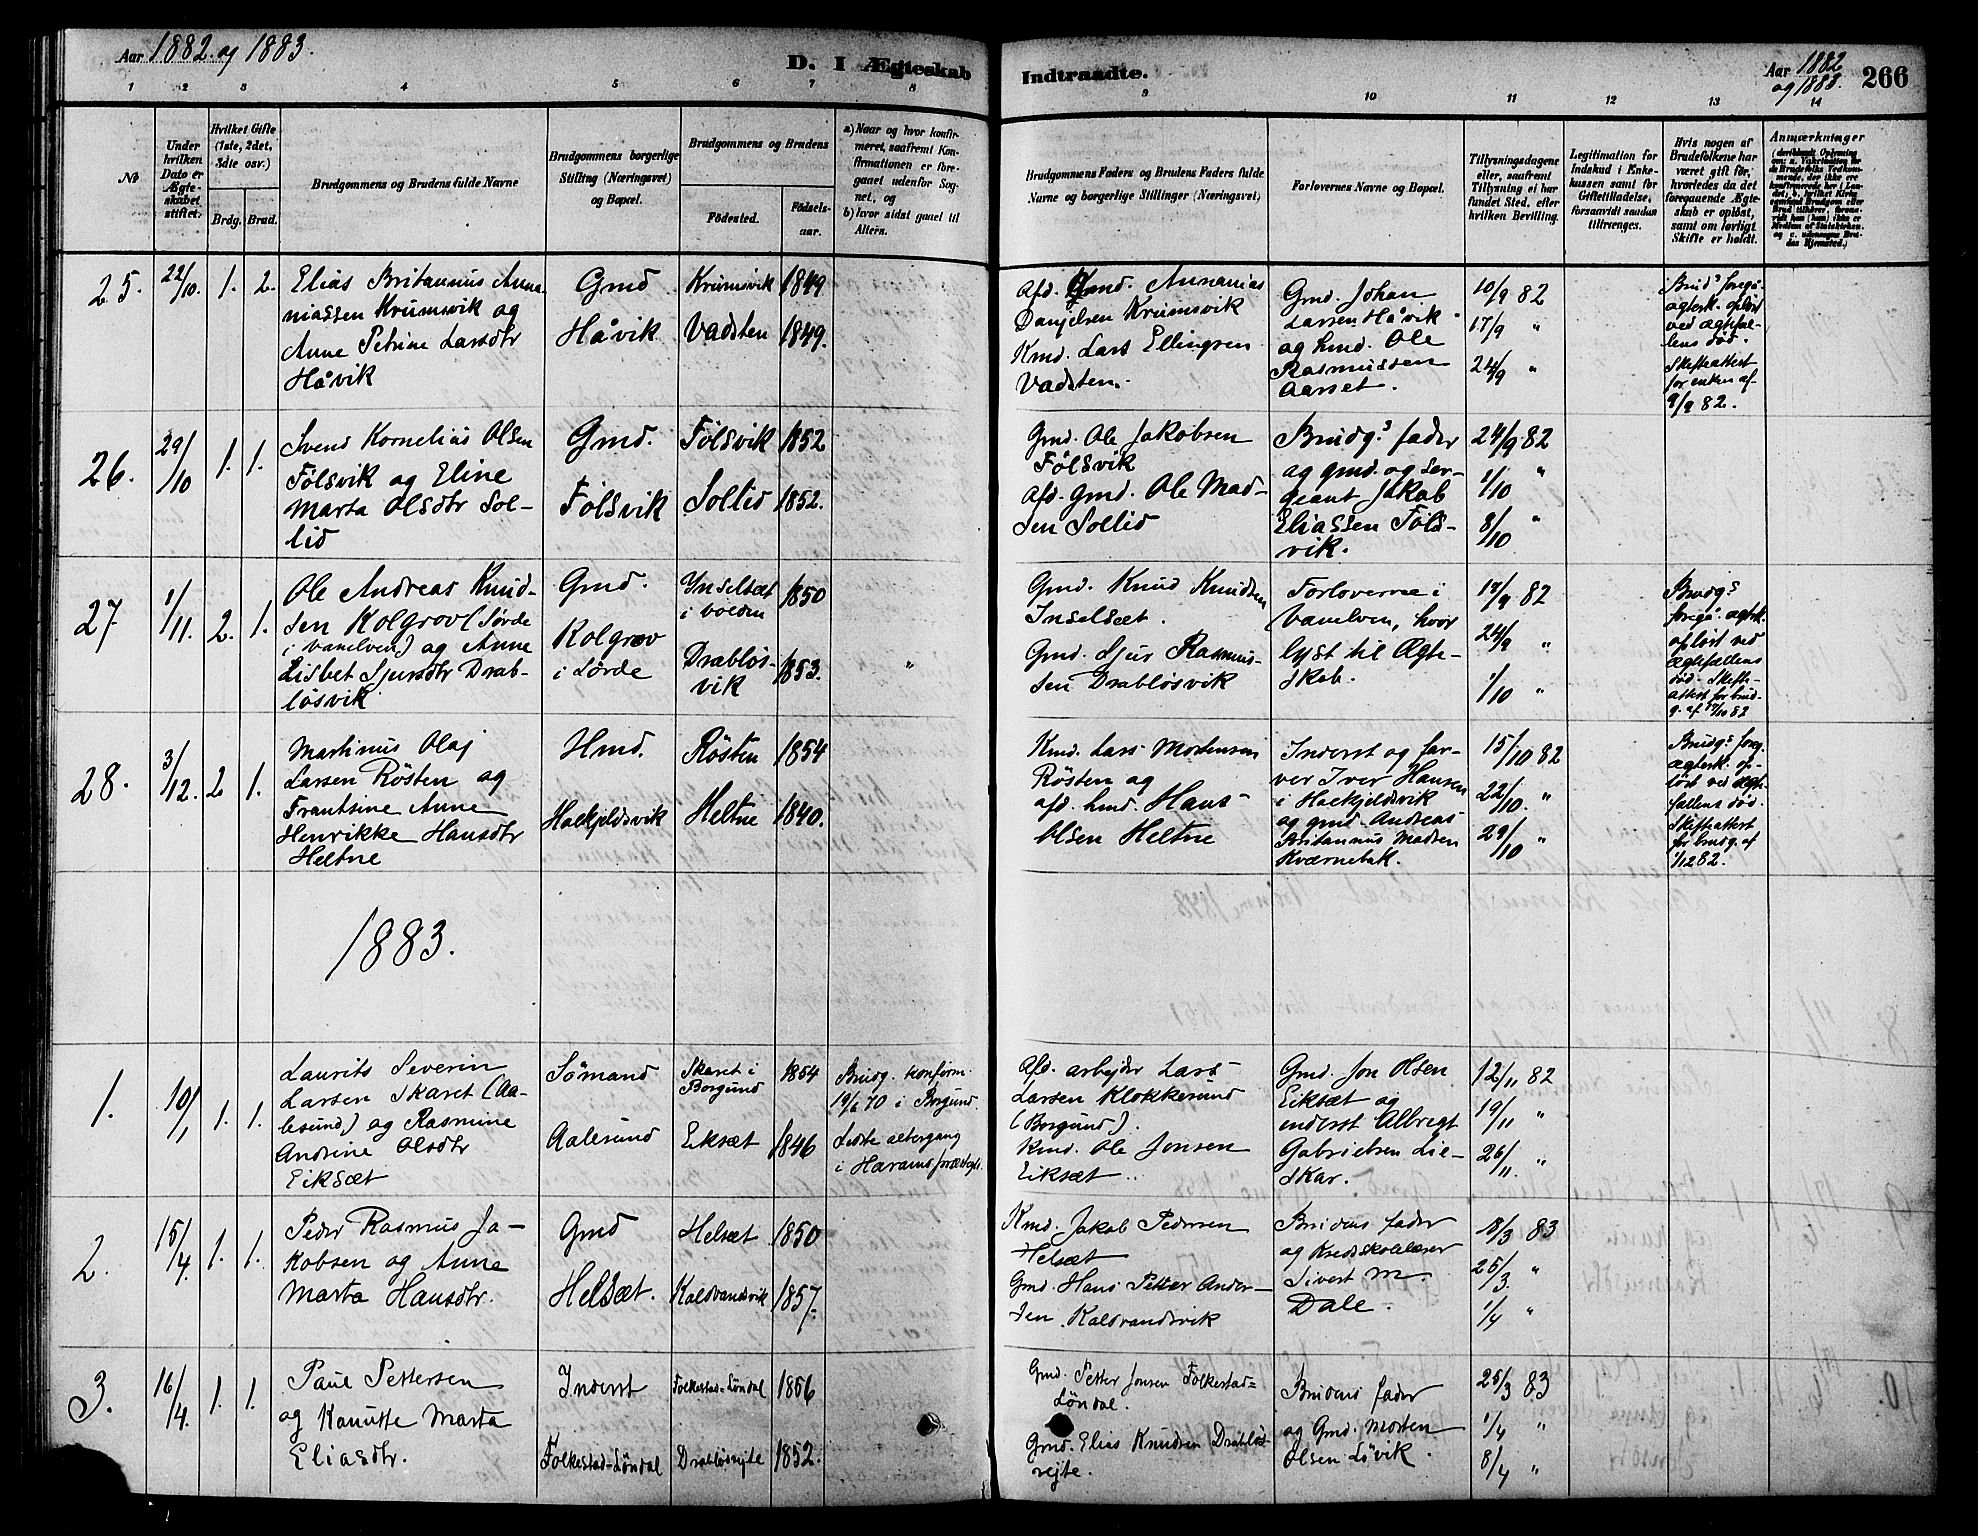 Aar 1882 og 1883.
D. I Ægteskab
Indtraadte.
Aar 1882 og 1883.
266
1 2 3 4 5 6 7 8
9 10 11 12 13 14
No
Under hvilken Dato er Ægteskabet stiftet.
Hvilket Gifte (1ste, 2det, 3die osv.)
Brdg. Brud.
Brudgommens og Brudens fulde Navne
Brudgommens borgerlige Stilling (Næringsvei) og Bopæl.
Brudgommens og Brudens
Fødested.
Fødselsaar.
a) Naar og hvor konfirmeret, saafremt Konfirmationen er foregaaet udenfor Sognet, og
b) hvor sidst gaaet til Alters.
Brudgommens Faders og Brudens Faders fulde Navne og borgerlige Stillinger (Næringsvei)
Forlovernes Navne og Bopæl.
Tillysningsdagene eller, saafremt Tillysning ei har fundet Sted, efter hvilken Bevilling.
Legitimation for Indskud i Enkekassen samt før Giftetilladelse, forsaavidt saadan tiltrænges.
Hvis nogen af Brudefolkene har været gift før, hvorledes da det foregaaende Ægteskab er opløst, samt om lovligt Skifte er holdt.
Anmærkninger
25.
22/10.
1. 2.
Elias Britannus Anna-
niassen Krumsvik og
Anne Petrine Larsdtr
Håvik
Gmd
Håvik
Krumsvik 1849
Vadsten 1849.
Afd. Gmd. Annanias
Danjelsen Krumsvik
Kmd. Lars Ellingsen
Vadsten.
Gmd. Johan
Larsen Håvik
og kmd. Ole
Rasmussen
Aarset.
10/9 82
17/9 "
24/9 "
Brud.s foreg.
ægtesk. opløst
ved ægtefæl-
lens død.
Skifteattest
for enken af
9/9 82.
26.
29/10
1. 1.
Svend Kornelius Olsen
Følsvik og Eline
Marta Olsdtr Sol-
lid
Gmd.
Følsvik
Følsvik 1852
Sollid 1852.
Gmd. Ole Jakobsen
Følsvik
Afd. Gmd. Ole Mad-
sen Sollid
Brudg.s fader
og gmd. og ser-
geant Jakob
Eliassen Føls-
vik.
24/9 82
1/10 "
8/10 "
27
1/11.
2. 1.
Ole Andreas Knud-
sen Kolgrov (Sørde
i Vanelven) og Anne
Lisbet Sjursdtr Drab-
løsvik
Gmd.
Kolgrov
i Sørde
Ynselsæt
i Volden 1850
Drabløs-
vik 1853.
"
Gmd. Knud Knudsen
Inselsæt.
Gmd. Sjur Rasmus-
sen Drabløsvik
Forloverne i
Vanelven, hvor
lyst til Ægte-
skab.
17/9 82
24/9 "
1/10 "
Brudg.s
foregå. ægtesk.
opløst ved
ægtefællens
død. Skifte-
attest for brud-
g. af 17/10 82
28.
3/12.
2 1.
Martinus Olaj
Larsen Røsten og
Frantsine Anne
Henrikke Hansdtr
Heltne
Hmd.
Haekjeldsvik
Røsten 1854
Heltne 1840.
Kmd. Lars Mortensen
Røsten og
afd. kmd. Hans
Olsen Heltne
Inderst og far-
ver Iver Hansen
i Haekjeldsvik
og gmd. Andreas
Britannus Madsen
Kværnebak.
15/10 82
22/10. "
29/10 "
Brudg.s foreg.
ægtesk. op-
løst ved ægte-
fællens død.
Skifteattest
for brudg. af
1/12 82.
1883.
1.
10/1
1. 1.
Laurits Severin
Larsen Skaret (Aa-
lesund) og Rasmine
Andrine Olsdtr
Eiksæt
Sømand
Aalesund
Skaret i
Borgund 1854
Eiksæt 1846
Brudg. konfirm.
19/6 70 i Borgund.
Sidste altergang
i Harams præstegl.
Afd. arbejder Lars
Larsen Klokkersund
(Borgund).
Kmd. Ole Jonsen
Eiksæt.
Gmd. Jon Olsen
Eiksæt og
inderst Albregt
Gabrielsen Lie-
skar.
12/11 82
19/11 "
26/11. "
2.
15/4.
1. 1.
Peder Rasmus Ja-
kobsen og Anne
Marta Hansdtr.
Gmd
Helsæt.
Helsæt 1850
Kaldvandsvik 1857.
Kmd. Jakob Pedersen
Helsæt
Gmd. Hans Petter Ander-
sen Kaldvandsvik
Brudens fader
og Kredsskolelærer
Sivert M.
Dale.
18/3 83
25/3. "
1/4 "
3.
16/4.
1. 1.
Paul Pettersen
og Kanutte Marta
Eliasdtr.
Inderst
Folkestad-Løndal
Folkestad-Løndal 1856
Drabløsrejte 1852.
Gmd. Petter Jonsen Folkestad-
Løndal.
Gmd. Elias Knudsen Drabløs-
rejte.
Brudens fader
og Gmd. Morten
Olsen Løvik.
25/3 83
1/4 "
8/4 "